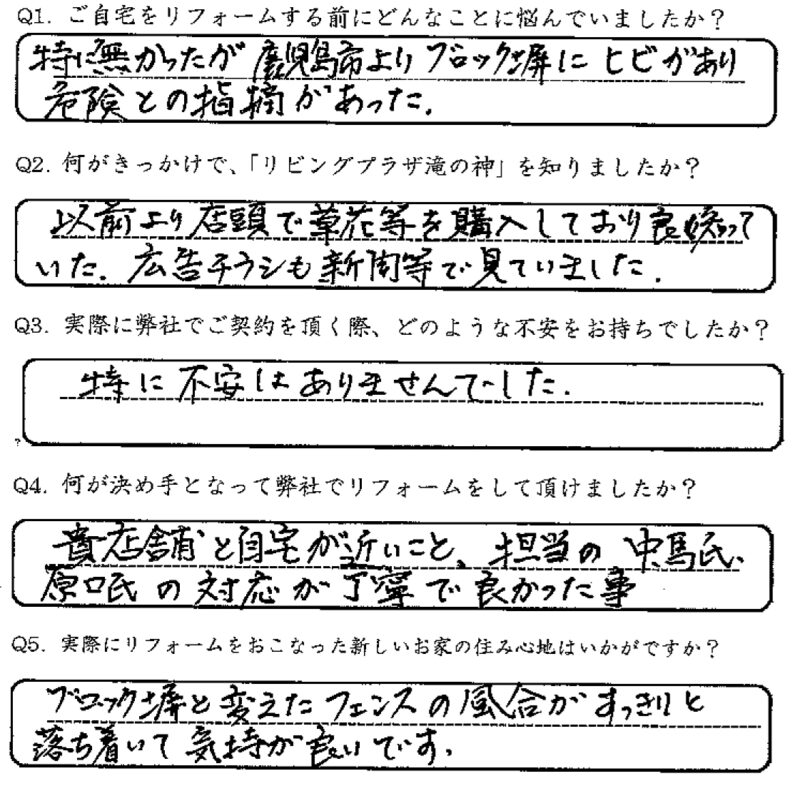 Q1. ご自宅をリフォームする前にどんなことに悩んでいましたか?
特に無かったが鹿児島市よりブロック塀にヒビがあり
危険との指摘があった.
Q2. 何がきっかけで、「リビングプラザ滝の神」を知りましたか?
以前より店頭で草花等を購入しており良く知って
いた. 広告チラシも新聞等で見ていました.
Q3. 実際に弊社でご契約を頂く際、どのような不安をお持ちでしたか?
特に不安はありませんでした.
?
Q4. 何が決め手となって弊社でリフォームをして頂けましたか?
貴店舗と自宅が近いこと、担当の中馬氏、
原口氏の対応が丁寧で良かった事
Q5. 実際にリフォームをおこなった新しいお家の住み心地はいかがですか?
ブロック塀と変えたフェンスの風合がすっきりと
落ち着いて気持が良いです.